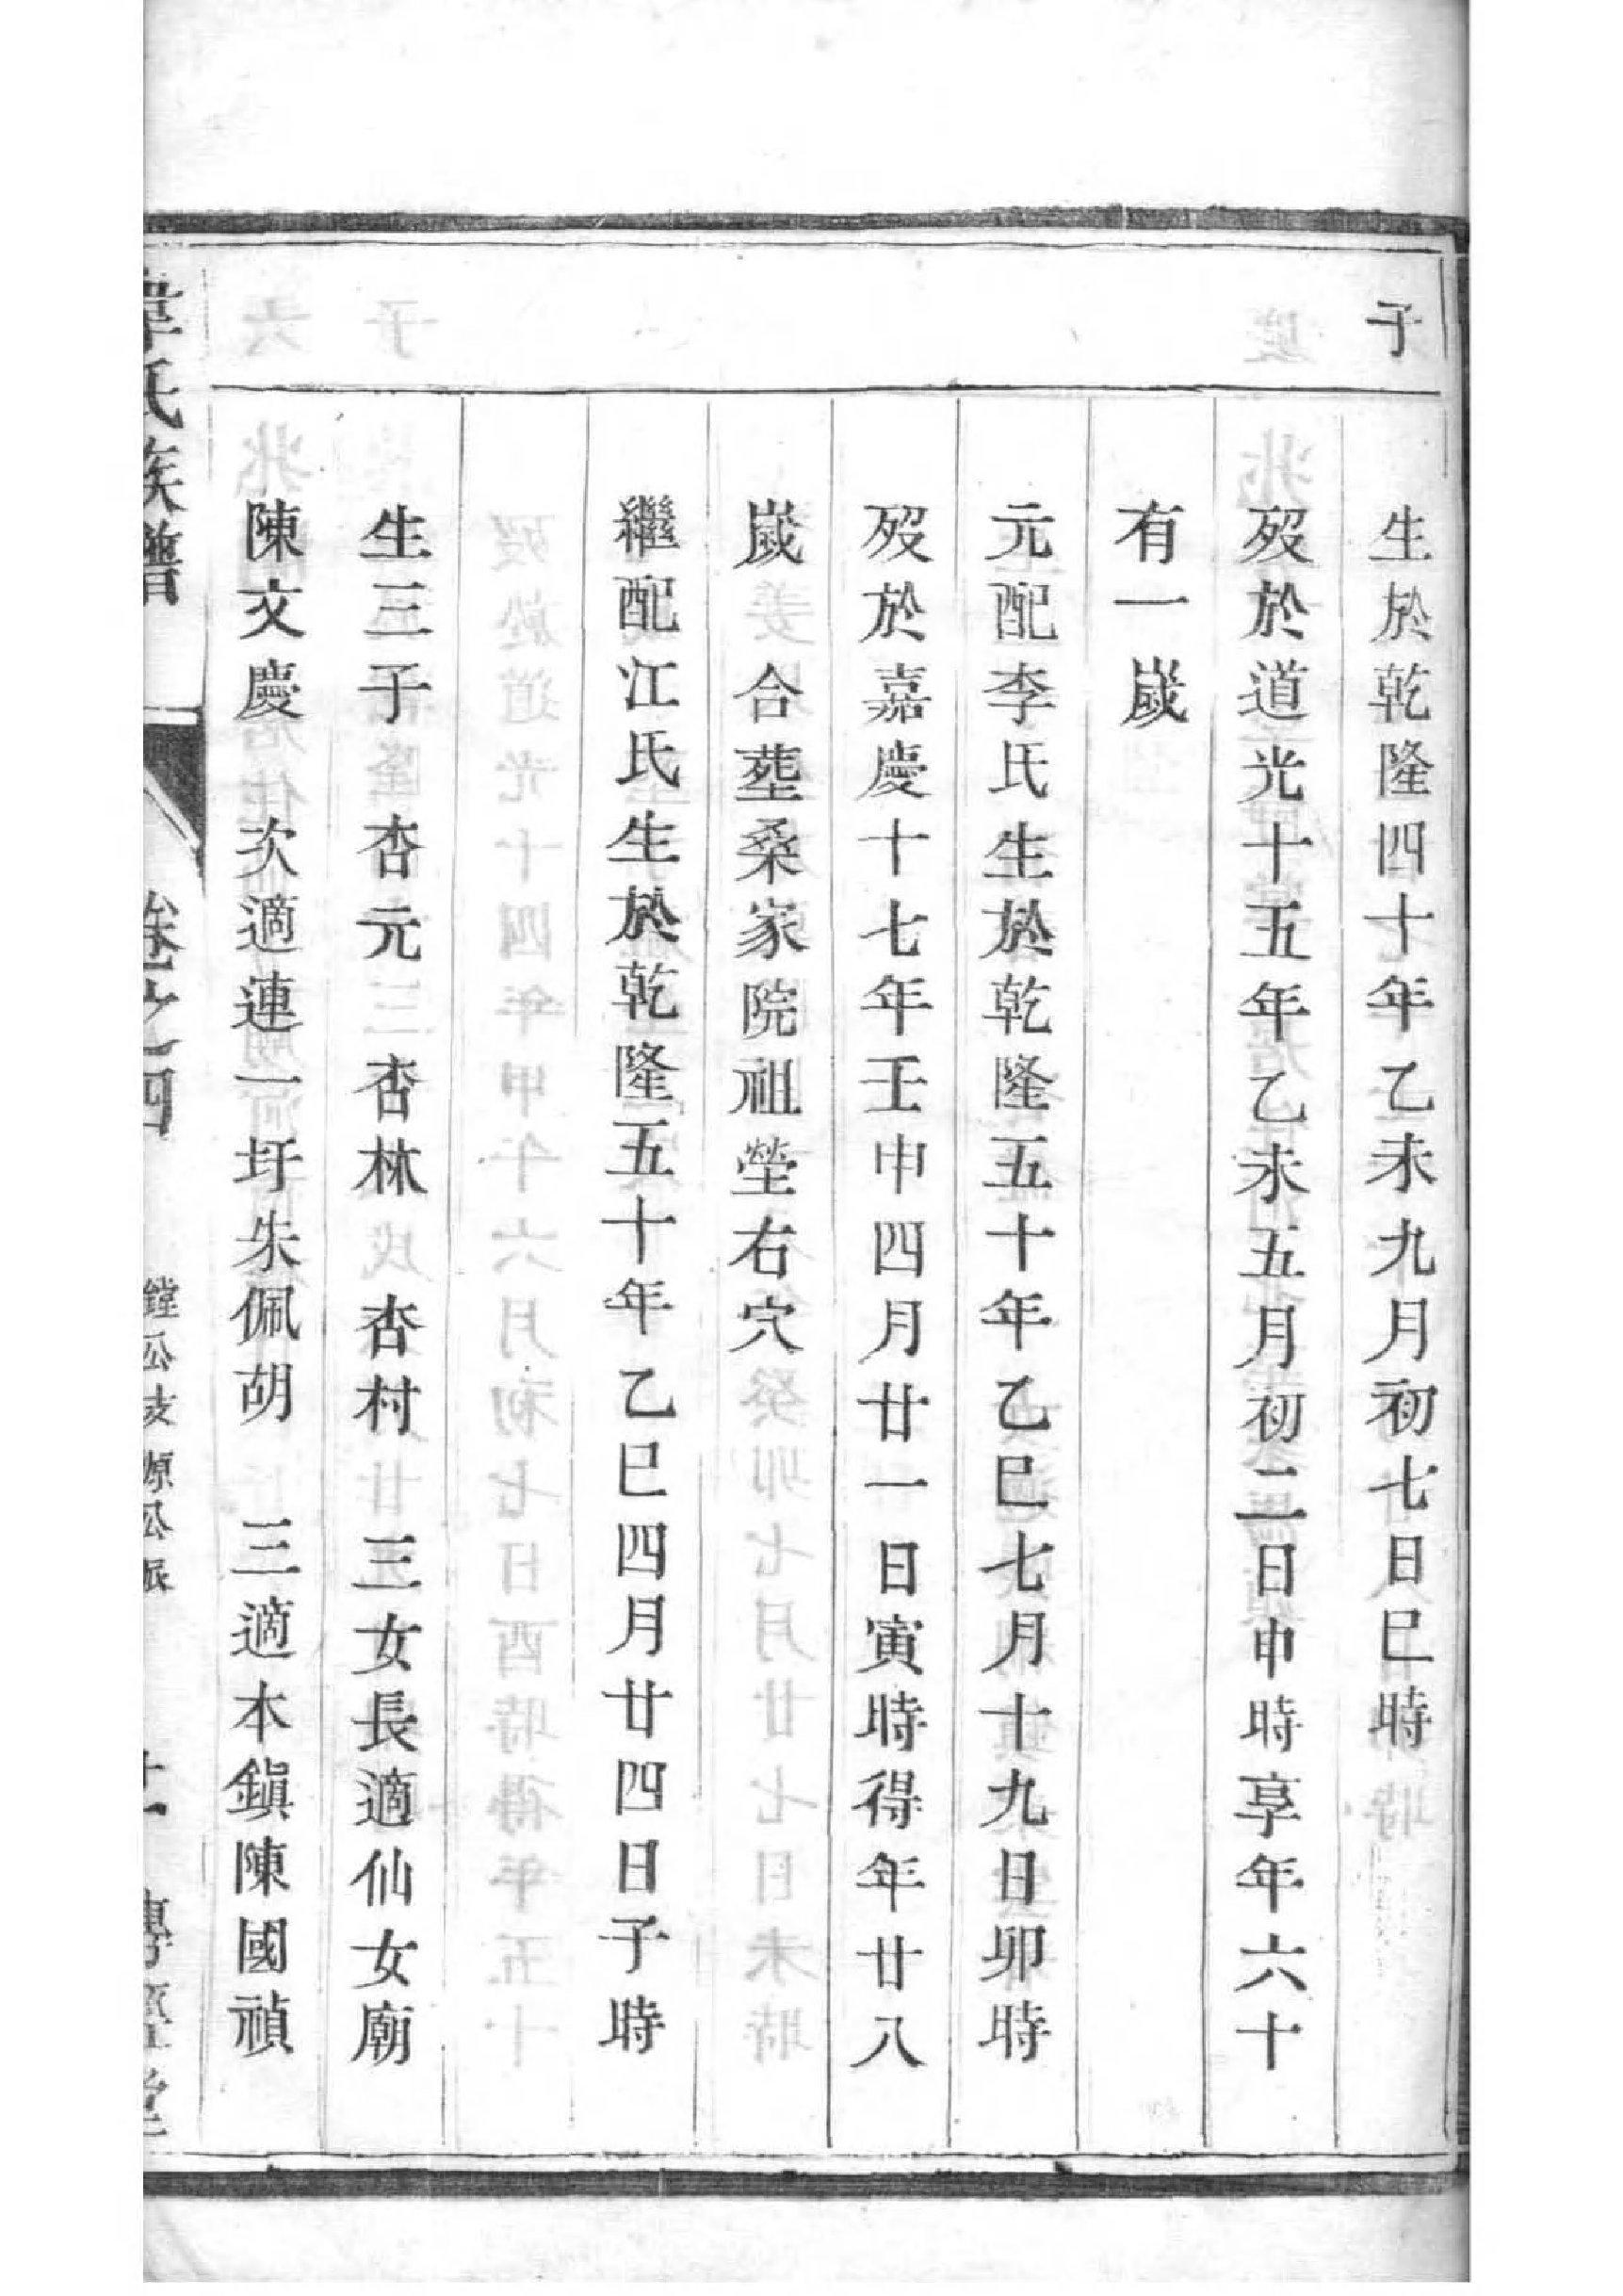 子
生於乾隆四十年乙未九月初七日巳時
歿於道光十五年乙未五月初二日申時享年六十
有一歲
元配李氏生於乾隆五十年乙巳七月十九日卯時
歿於嘉慶十七年壬申四月廿一日寅時得年廿八
歲 合塟桑家院祖塋右穴
繼配江氏生於乾隆五十年乙巳四月廿四日子時
生三子 杏元 杏林 杏村 三女長適仙女廟
陳文慶 次適連一圩朱佩胡 三適本鎭陳國禎
韋氏族譜 卷之四 鏜公支源公派 十一 傳經堂